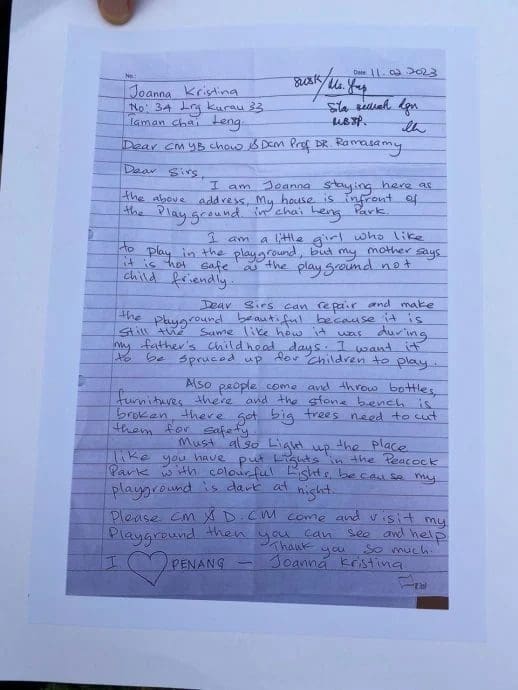 No.:
Date: 11.02.2023
Joanna Kristina
No: 34 Lrg Kurau 33
Taman Chai Leng.
SUSK/Ms. Yap
Sla semak dgn
MBSP.
Dear CM YB Chow & DCM Prof DR. Ramasamy
Dear Sirs,
I am Joanna staying here as
the above address, My house is infront of
the Playground in Chai Leng Park.
I am a little girl who like
to play in the playground, but my mother says
it is not safe as the playground not
child friendly.
Dear Sirs can repair and make
the playground beautiful because it is
still the same like how it was during
my father's childhood days. I want it
to be spruced up for children to play.
Also people come and throw bottles,
furnitures there and the stone bench is
broken, there got big trees need to cut
them for safety.
Must also Light up the place
like you have put Lights in the Peacock
Park with colourful Lights, because my
playground is dark at night.
Please CM & D.CM come and visit my
Playground then you can see and help.
Thank you so much.
I ♡ PENANG — Joanna Kristina